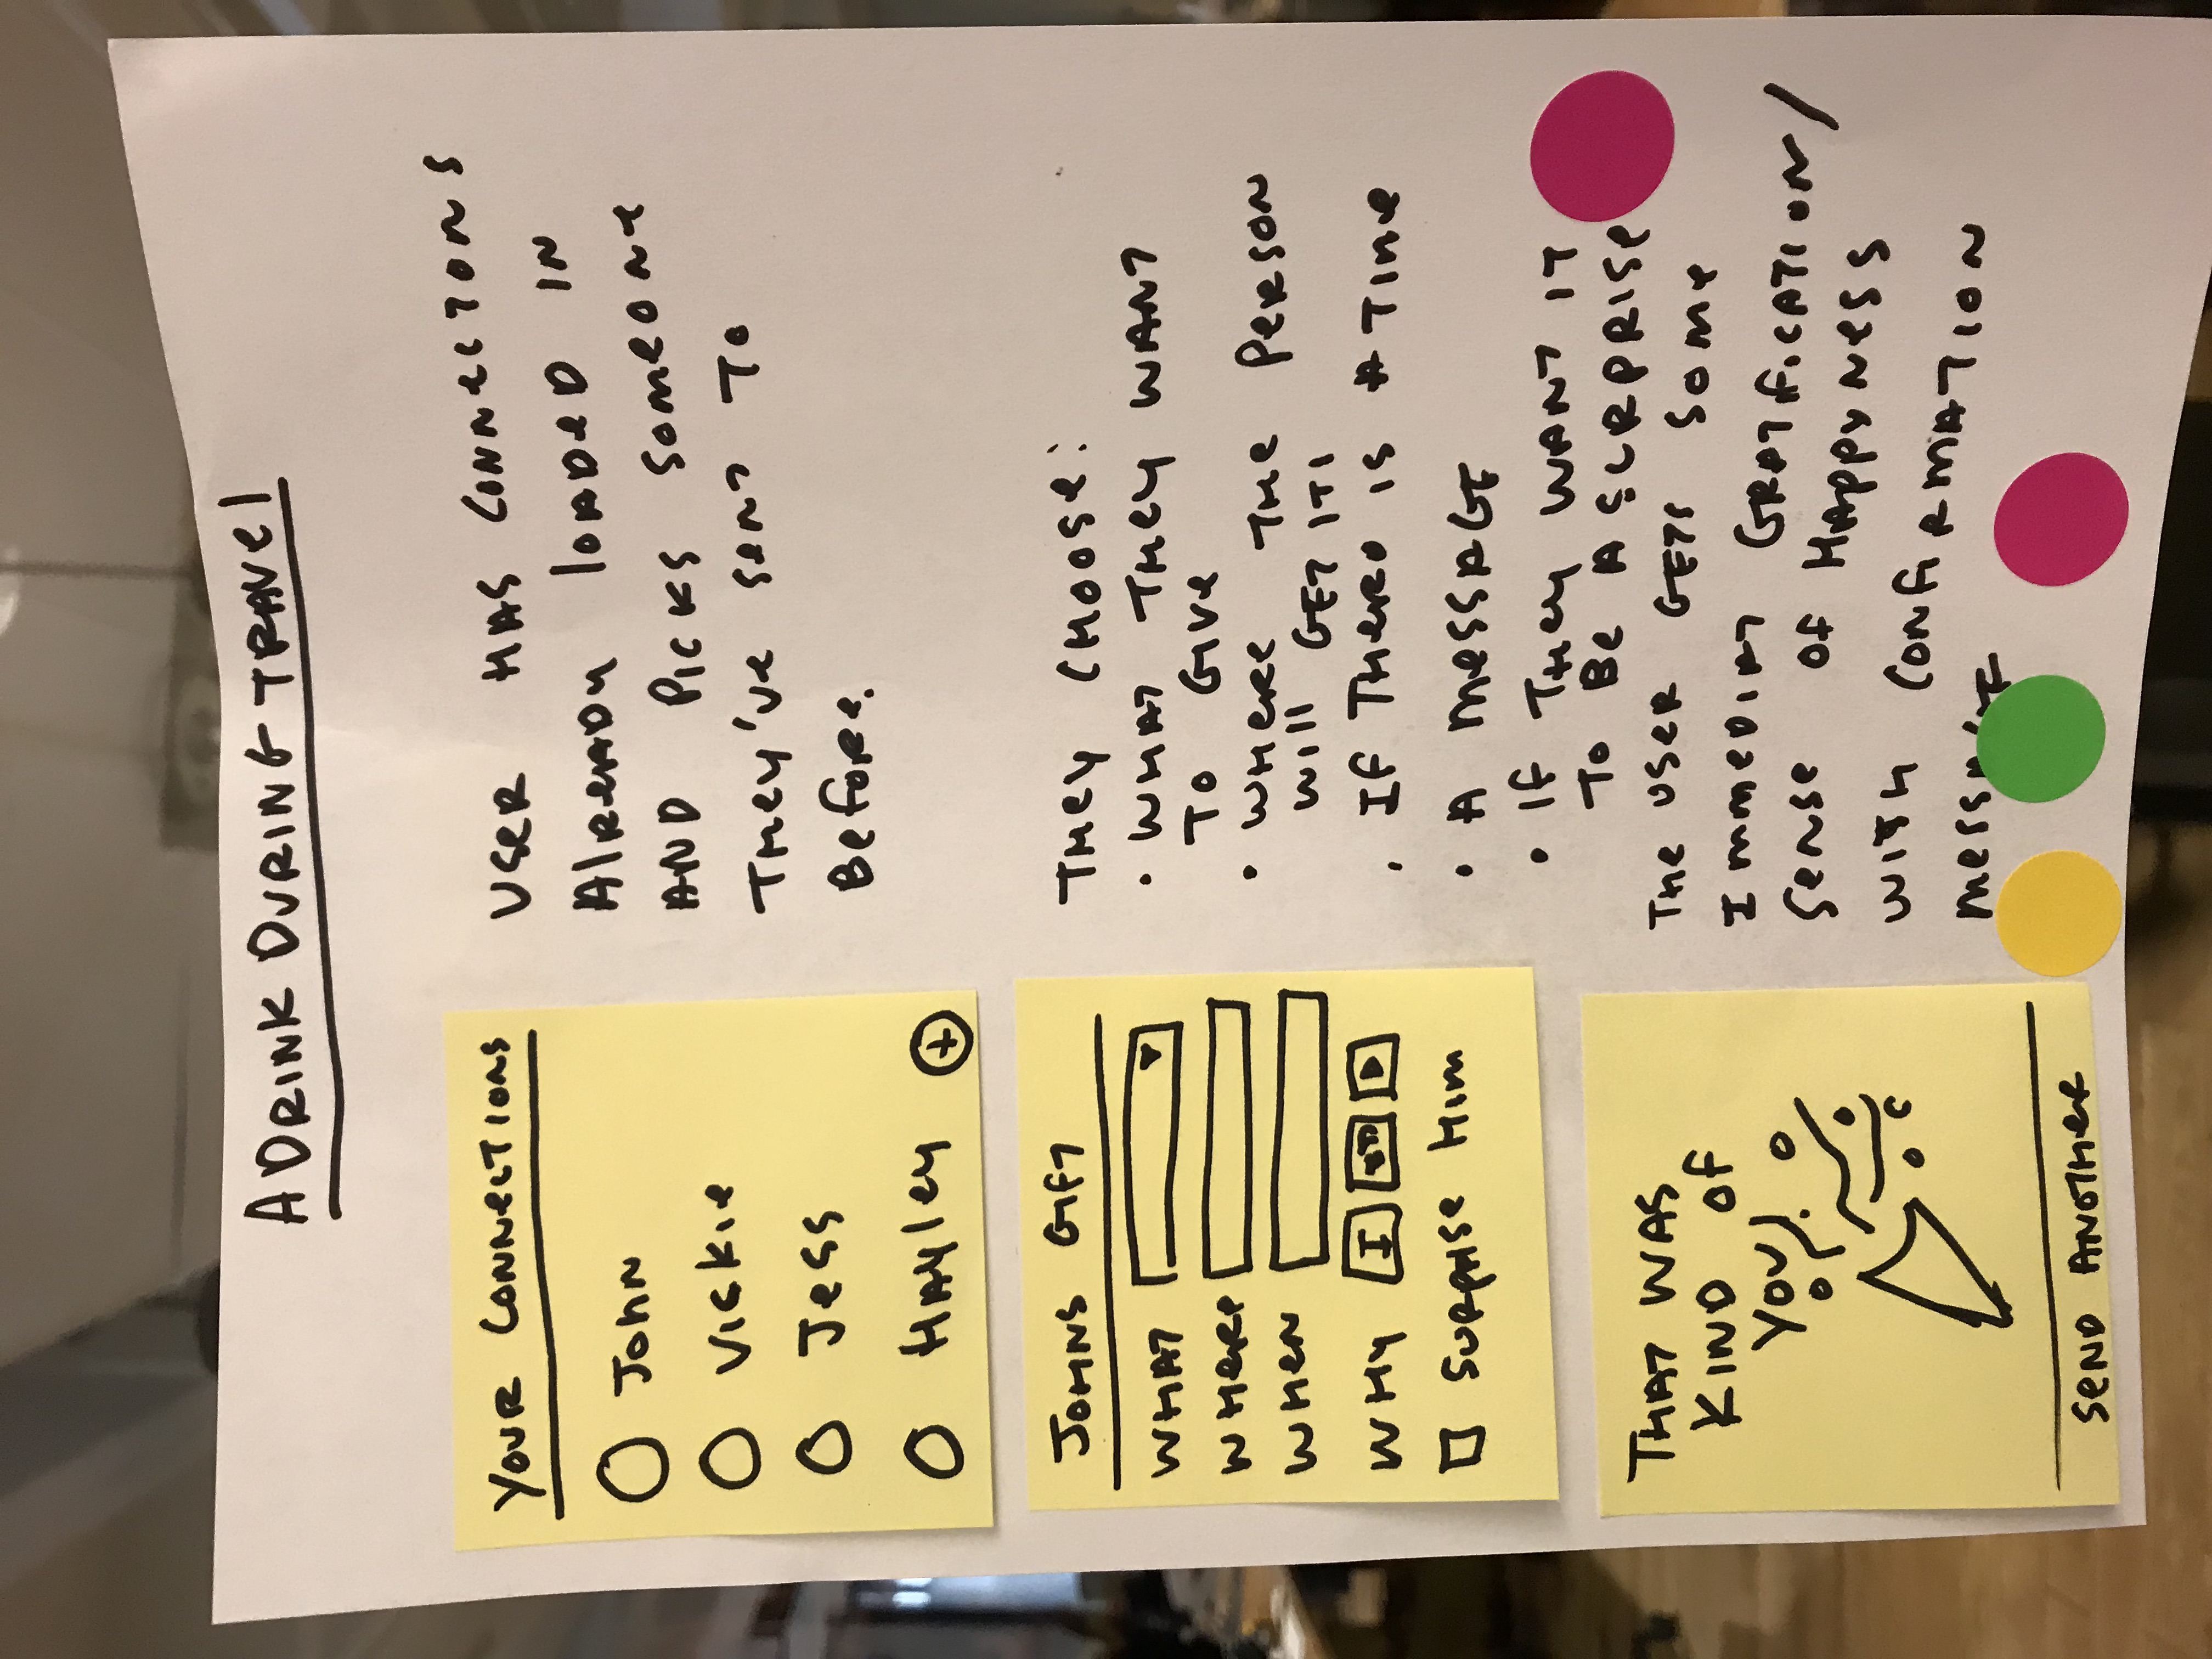 A DRINK DURING TRAVEL
YOUR CONNECTIONS
JOHN
VICKIE
JESS
HAYLEY +
USER HAS CONNECTONS
ALREADY LOADED IN
AND PICKS SOMEONE
THEY'VE SENT TO
BEFORE.
JOHNS GIFT
WHAT
WHERE
WHEN
WHY I
SURPRISE HIM
THEY CHOOSE:
• WHAT THEY WANT
TO GIVE
• WHERE THE PERSON
WILL GET IT!
• IF THERE IS A TIME
• A MESSAGE
• IF THEY WANT IT
TO BE A SURPRISE
THAT WAS
KIND OF
YOU!
SEND ANOTHER
THE USER GETS SOME
IMMEDIAT GRATIFICATION/
SENSE OF HAPPYNESS
WITH CONFIRMATION
MESSAGE